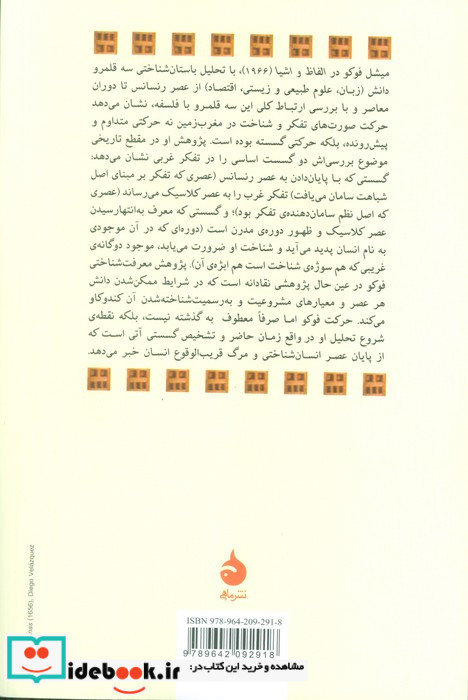 میشل فوکو در الفاظ و اشیا (۱۹۶۶)، با تحلیل باستان‌شناختی سه قلمرو
دانش (زبان، علوم طبیعی و زیستی، اقتصاد) از عصر رنسانس تا دوران
معاصر و با بررسی ارتباط کلی این سه قلمرو با فلسفه، نشان می‌دهد
حرکت صورت‌های تفکر و شناخت در مغرب‌زمین نه حرکتی متداوم و
پیش‌رونده، بلکه حرکتی گسسته بوده است. پژوهش او در مقطع تاریخی
موضوع بررسی‌اش دو گسست اساسی را در تفکر غربی نشان می‌دهد:
گسستی که با پایان‌دادن به عصر رنسانس (عصری که تفکر بر مبنای اصل
شباهت سامان می‌یافت) تفکر غرب را به عصر کلاسیک می‌رساند (عصری
که اصل نظم سامان‌دهنده‌ی تفکر بود)؛ و گسستی که معرف به‌انتهارسیدن
عصر کلاسیک و ظهور دوره‌ی مدرن است (دوره‌ای که در آن موجودی
به نام انسان پدید می‌آید و شناخت او ضرورت می‌یابد، موجود دوگانه‌ی
غریبی که هم سوژه‌ی شناخت است هم ابژه‌ی آن). پژوهش معرفت‌شناختی
فوکو در عین حال پژوهشی نقادانه است که در شرایط ممکن‌شدن دانش
هر عصر و معیارهای مشروعیت و به‌رسمیت‌شناخته‌شدن آن کندوکاو
می‌کند. حرکت فوکو اما صرفاً معطوف به گذشته نیست، بلکه نقطه‌ی
شروع تحلیل او در واقع زمان حاضر و تشخیص گسستی آتی است که
از پایان عصر انسان‌شناختی و مرگ قریب‌الوقوع انسان خبر می‌دهد.
(1656), Diego Velázquez
نشر ماهی
ISBN 978-964-209-291-8
9 789642 092918
مشاهده و خرید این کتاب در:
idebook.ir